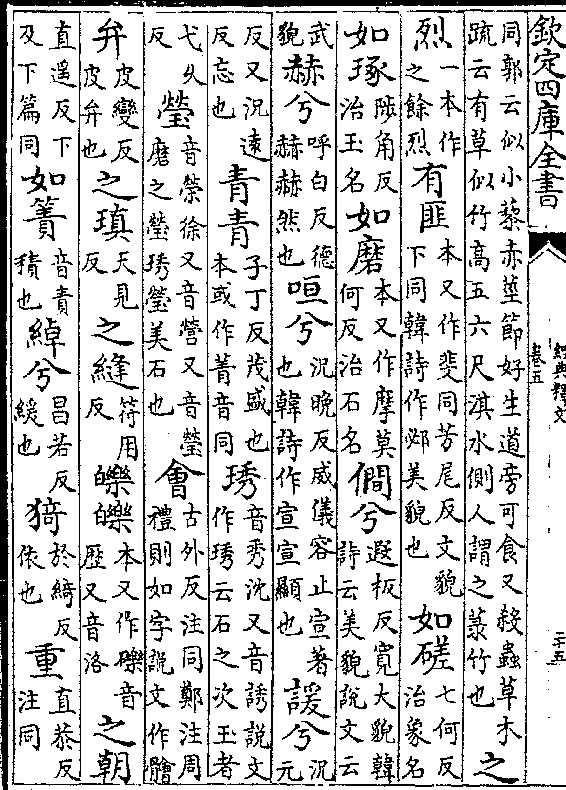 欽定四庫全書
經典釋文
卷五
二十五
同郭云似小藜赤莖節好生道旁可食又殺蟲草木疏云有草似竹高五六尺淇水側人謂之菉竹也之
烈一本作之餘烈有匪本又作斐同芳尾反文貌下同韓詩作邲美貌也如磋七何反治象名
如琢陟角反治玉名如磨本又作摩莫何反治石名僩兮遐板反寬大貌韓詩云美貌說文云
武貌赫兮呼白反德赫赫然也咺兮況晚反威儀容止宣著也韓詩作宣宣顯也諼兮況元
反又況遠反忘也青青子丁反茂盛也本或作菁音同琇音秀沈又音誘說文作琇云石之次玉者
弋久反瑩音榮徐又音營又音瑩磨之瑩琇瑩美石也會古外反注同鄭注周禮則如字說文作䯤
弁皮變反皮弁也之瑱天見反之縫符用反皪皪本又作礫音歷又音洛之朝
直遥反下及下篇同如簀音責積也綽兮昌若反緩也猗於綺反依也重直恭反注同